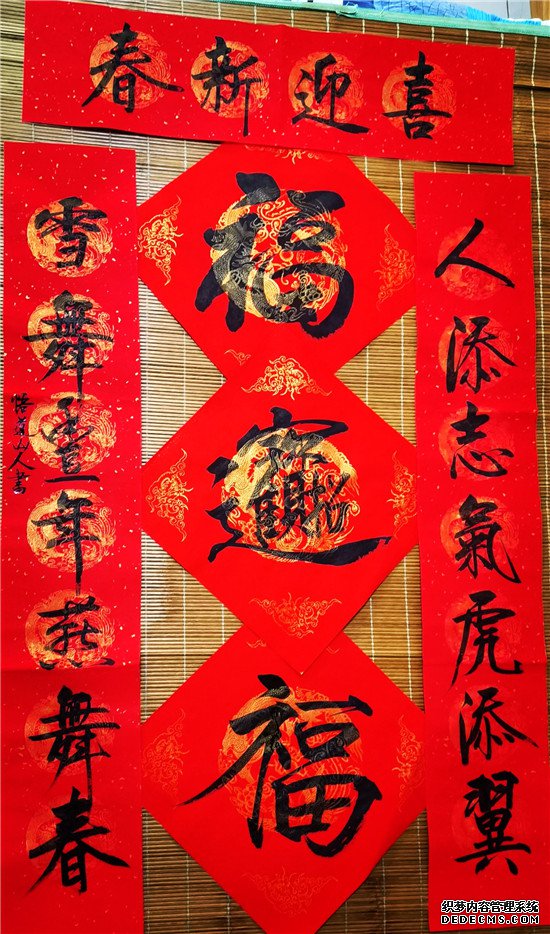 喜迎新春
人添志氣虎添翼
雪舞豐年燕舞春
山人書
福
招財進寶
福
织梦内容管理系统
DEDECMS.COM